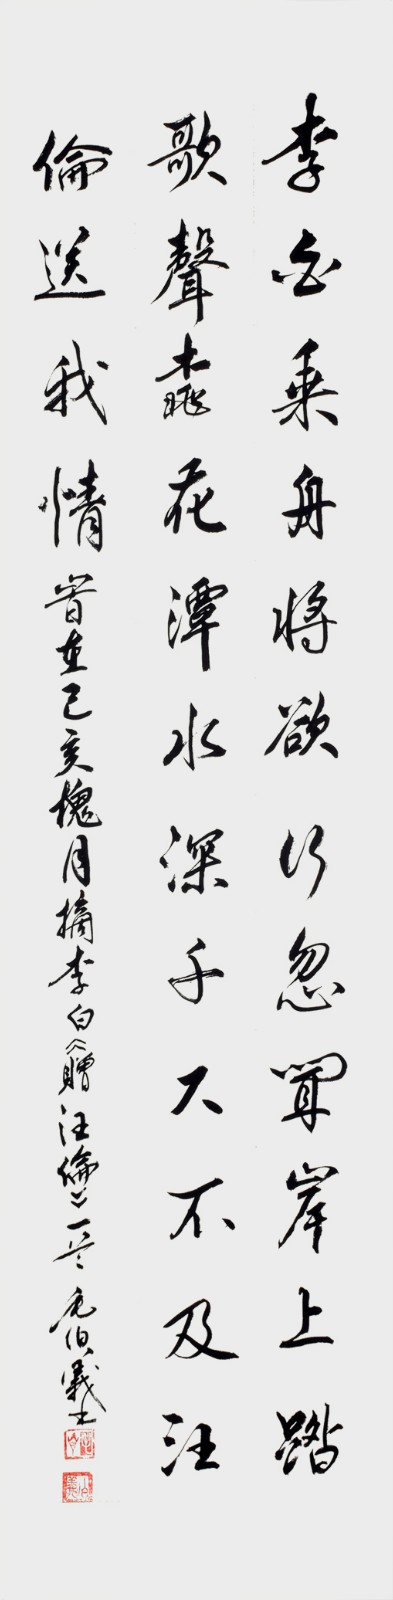 李白乘舟將欲行忽聞岸上踏
歌聲桃花潭水深千尺不及汪
倫送我情
旹在己亥槐月摘李白《贈汪倫》一